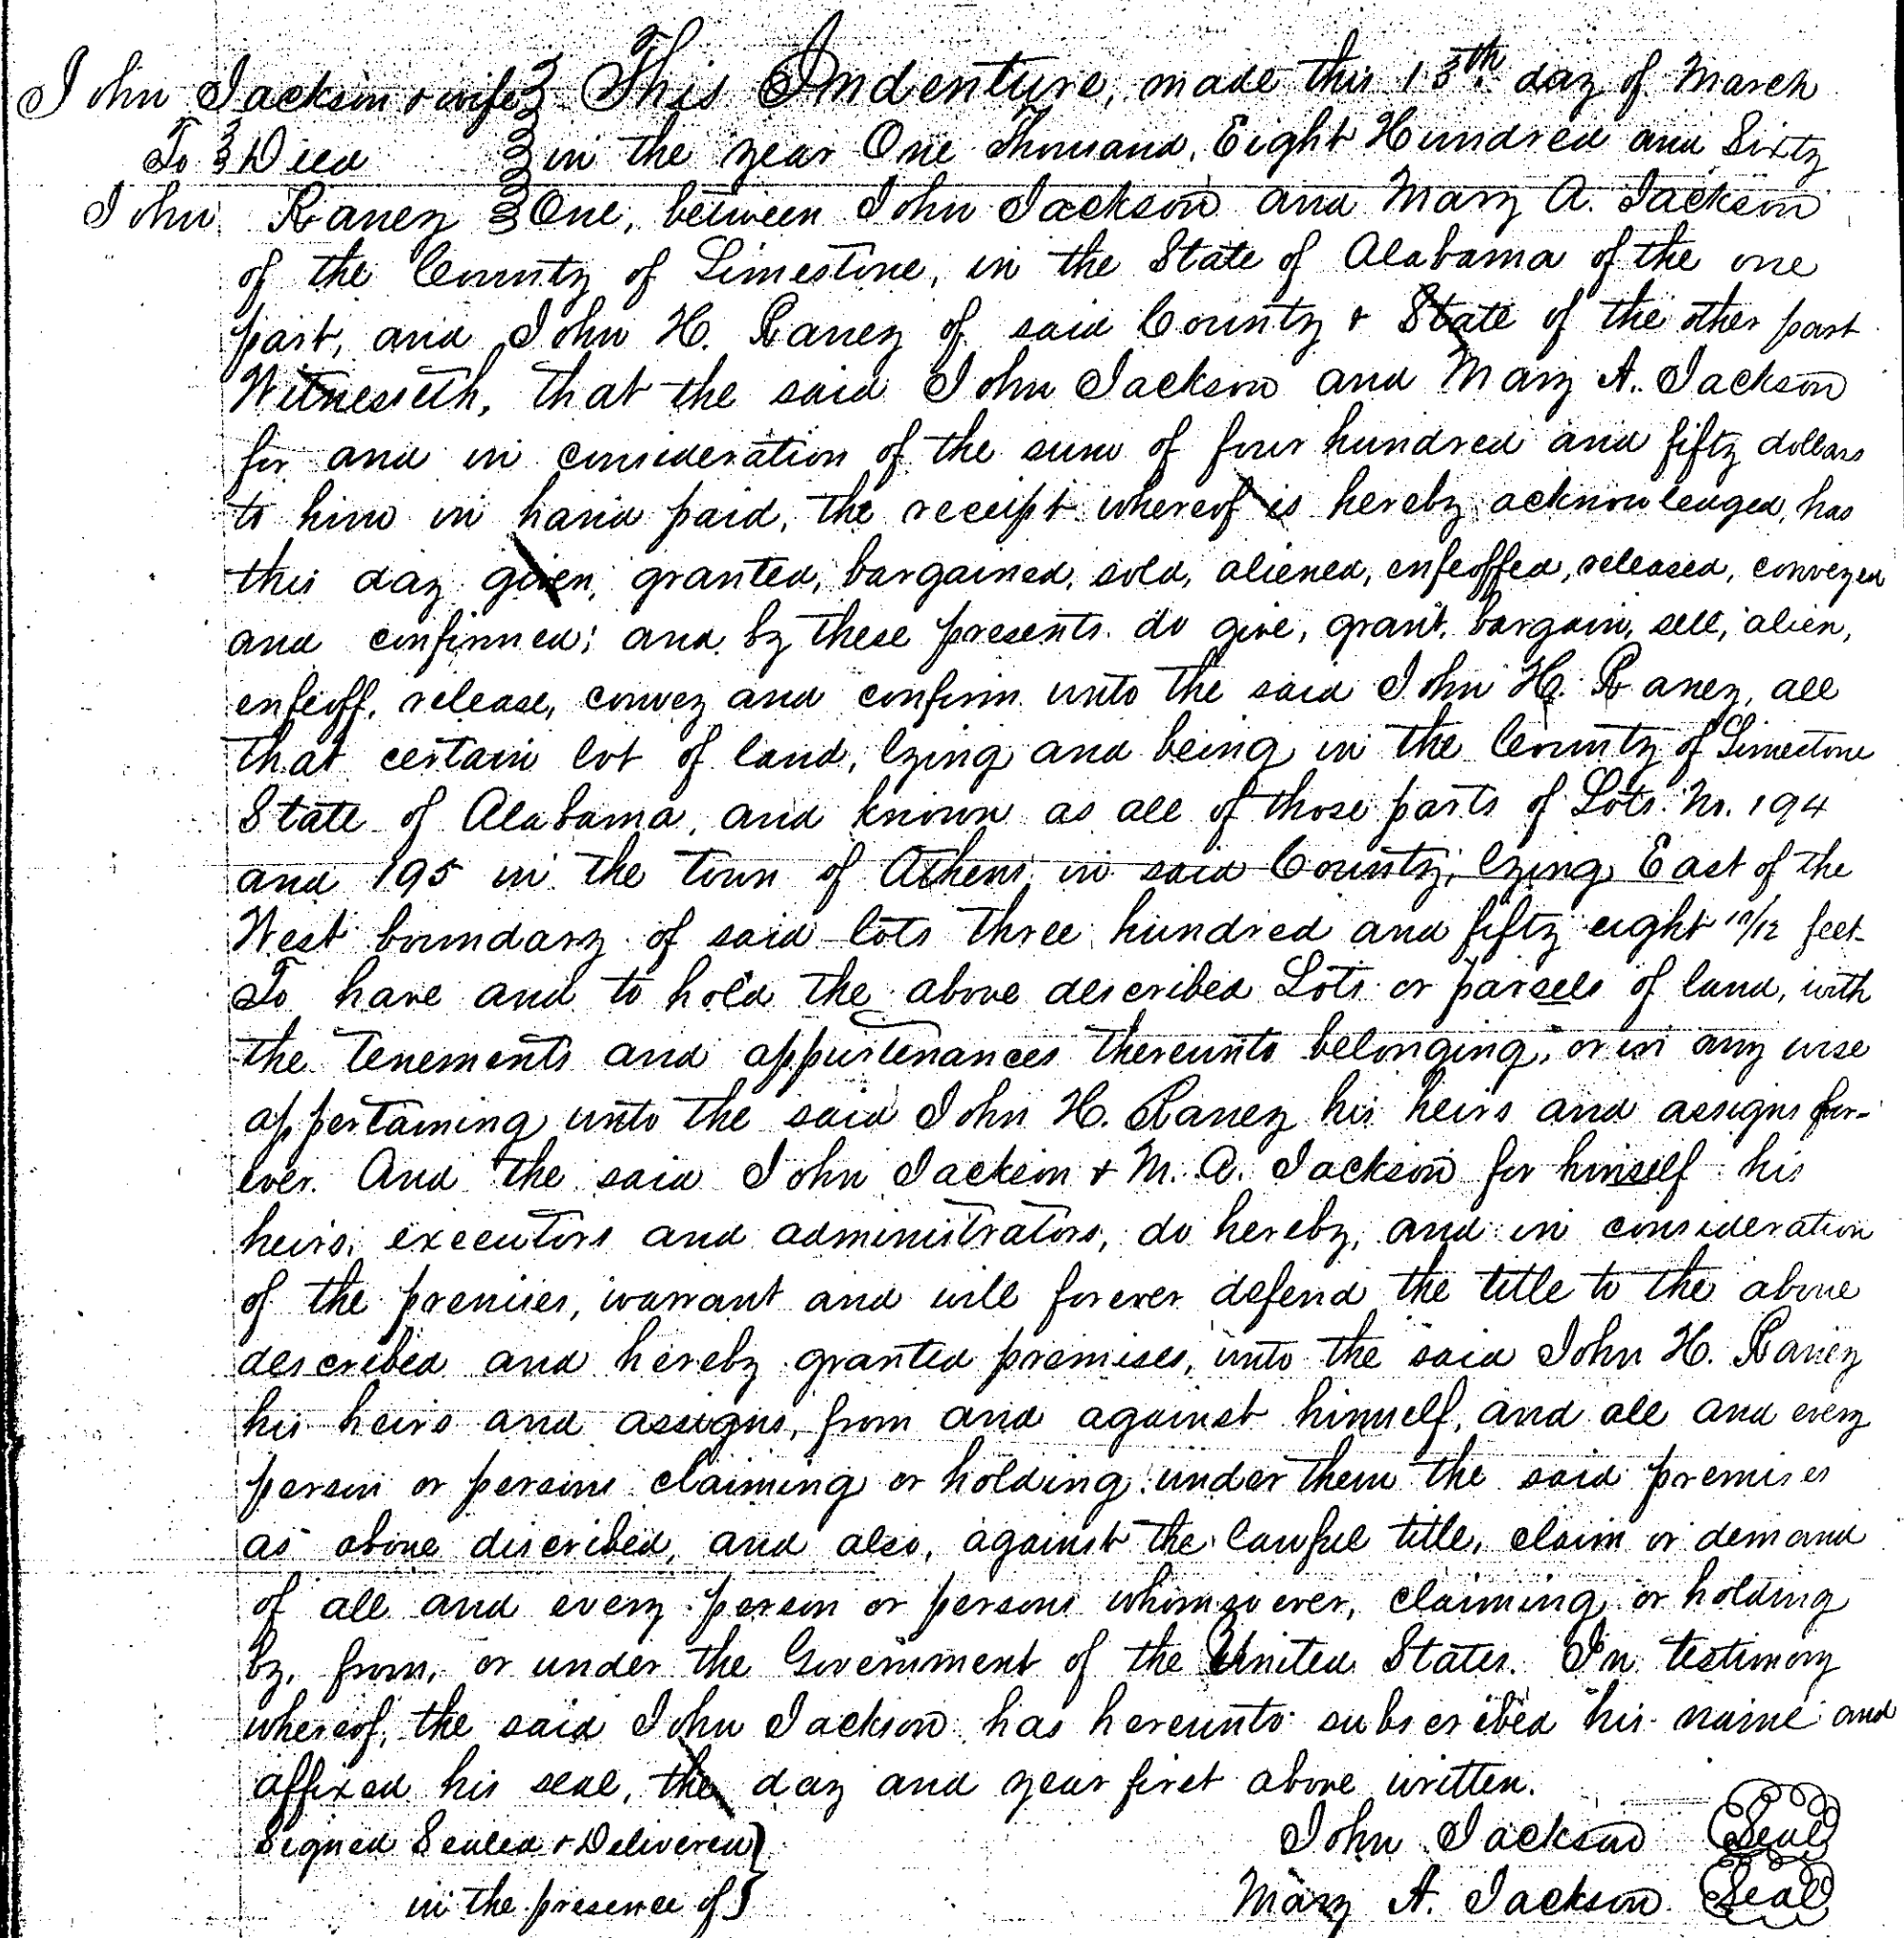 John Jackson & wife This Indenture, made this 13th day of March
To Deed in the year One Thousand, Eight Hundred and Sixty
John Raney One, between John Jackson and Mary A. Jackson
of the County of Limestone, in the State of Alabama of the one
part, and John H. Raney of said County & State of the other part
Witnesseth, that the said John Jackson and Mary A. Jackson
for and in consideration of the sum of four hundred and fifty dollars
to him in hand paid, the receipt whereof is hereby acknowledged, has
this day given, granted, bargained, sold, aliened, enfeoffed, released, conveyed
and confirmed; and by these presents do give, grant, bargain, sell, alien,
enfeoff, release, convey and confirm unto the said John H. Raney, all
that certain lot of land, lying and being in the County of Limestone
State of Alabama, and known as all of those parts of Lots No. 194
and 195 in the town of Athens in said County, lying East of the
West boundary of said lots three hundred and fifty eight feet
To have and to hold the above described Lots or parsels of land, with
the tenements and appurtenances thereunto belonging, or in any wise
appertaining unto the said John H. Raney his heirs and assigns for-
ever. And the said John Jackson & M. A. Jackson for himself his
heirs, executors and administrators, do hereby, and in consideration
of the premises, warrant and will forever defend the title to the above
described and hereby granted premises, unto the said John H. Raney
his heirs and assigns, from and against himself, and all and every
person or persons claiming or holding under them the said premises
as above discribed, and also, against the lawful title, claim or demand
of all and every person or persons whomsoever, claiming or holding
by, from, or under the Government of the United States. In testimony
whereof, the said John Jackson has hereunto subscribed his name and
affixed his seal, the day and year first above written.
Signed Sealed & Delivered John Jackson Seal
in the presence of Mary A. Jackson Seal